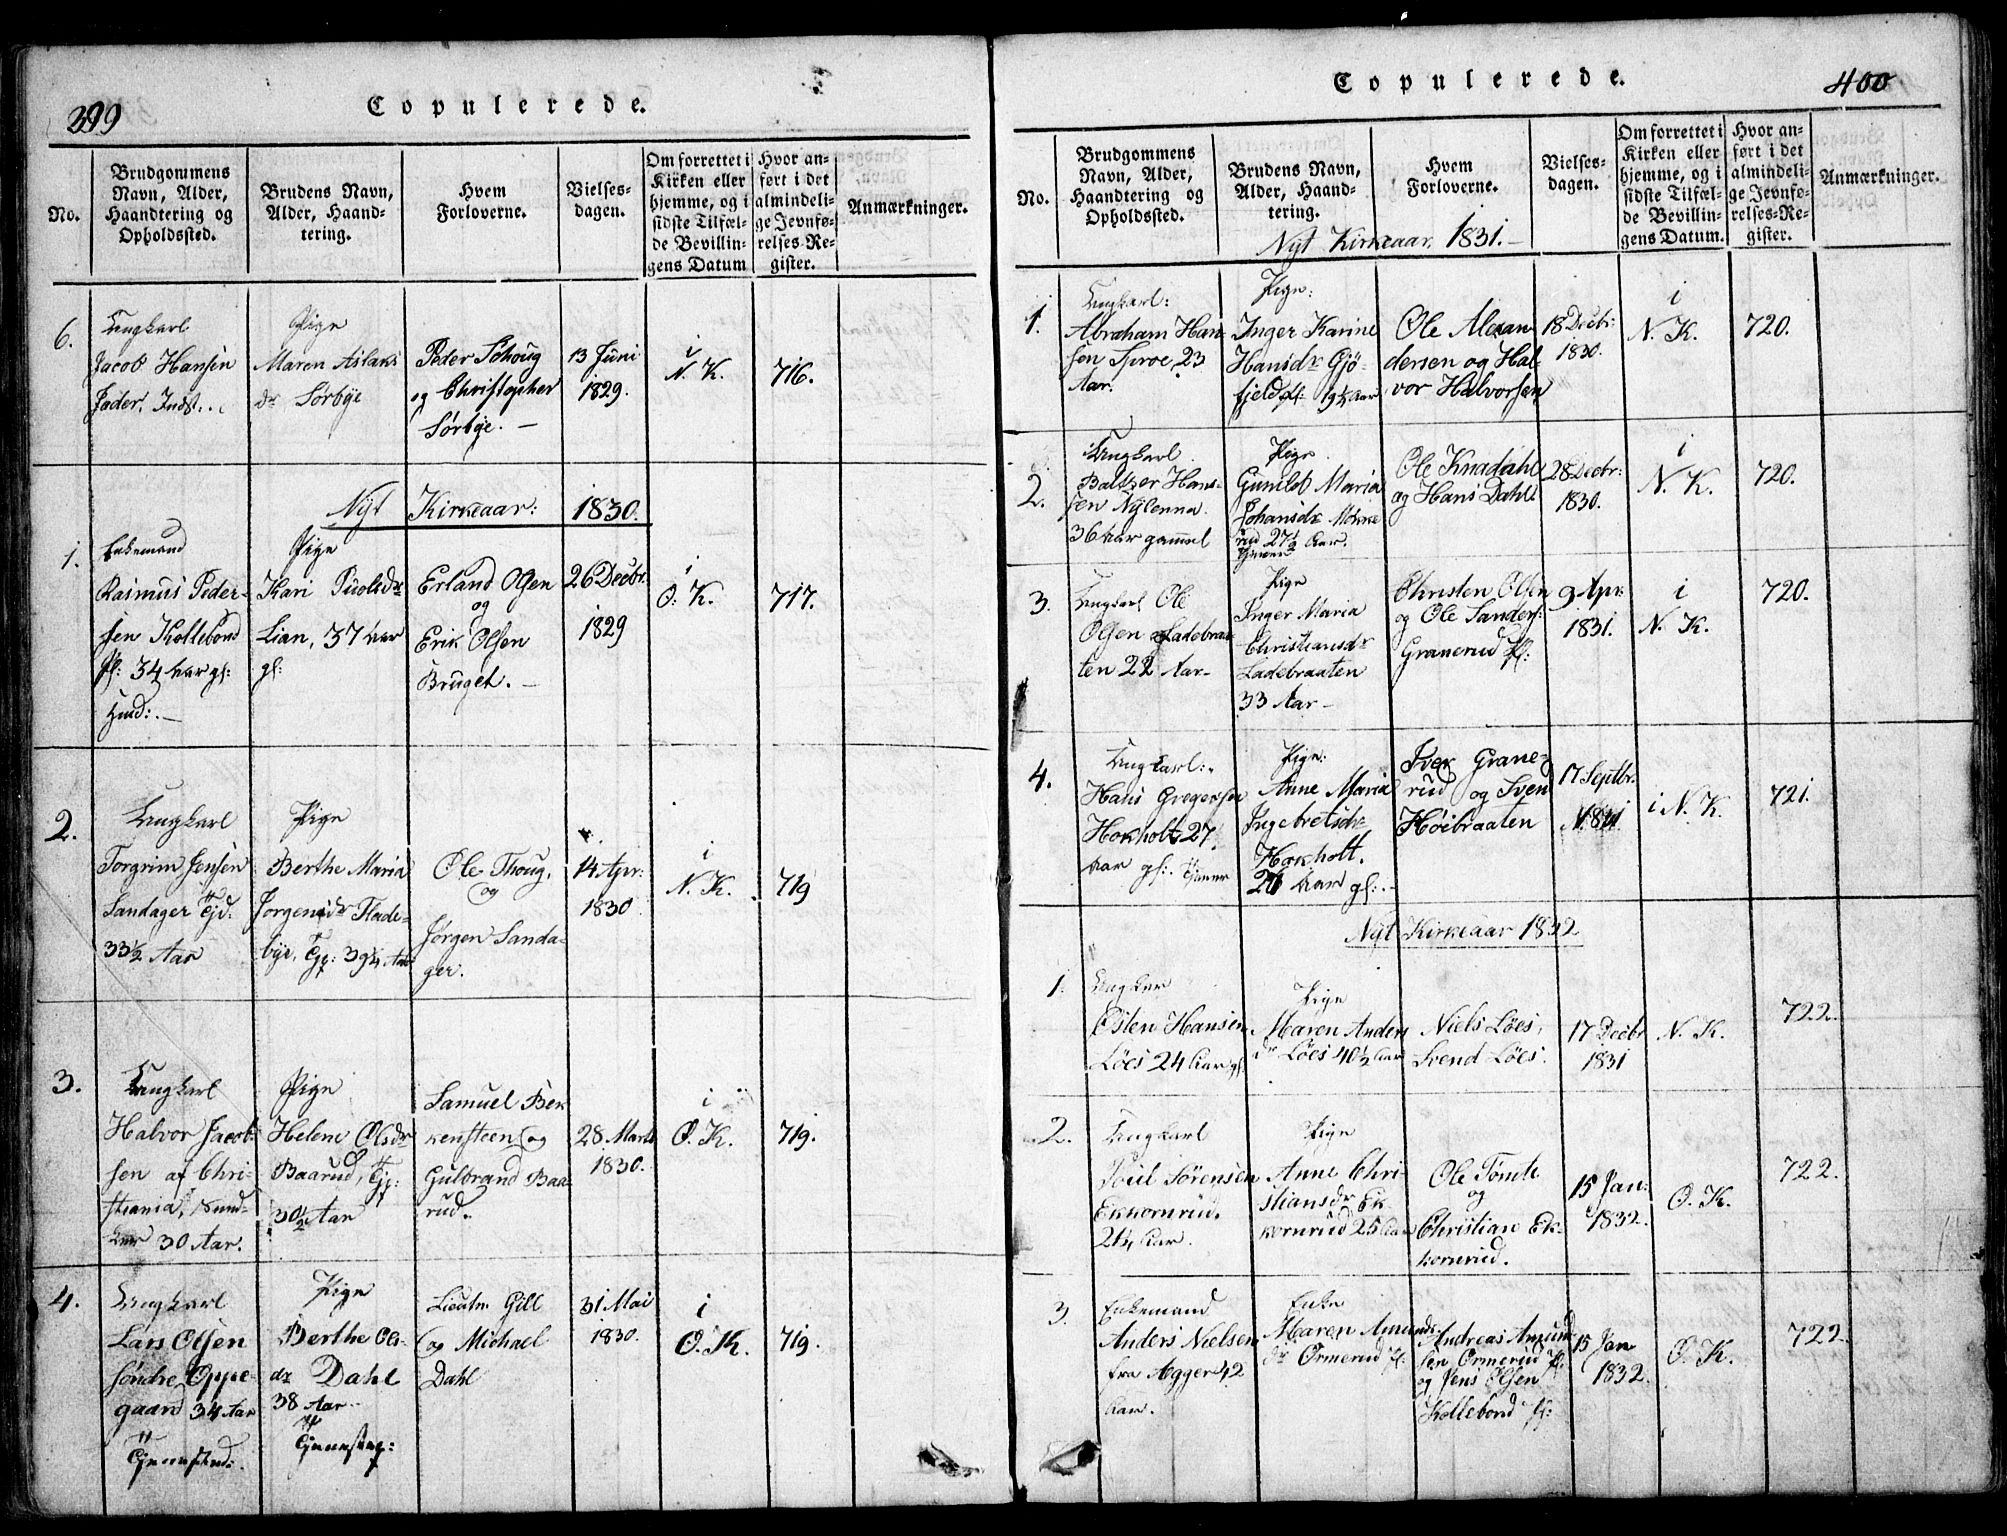 399
Copulerede.
No.
Brudgommens
Navn, Alder,
Haandtering og
Opholdssted.
Brudens Navn,
Alder, Haand-
tering.
Hvem
Forloverne.
Vielses-
dagen.
Om forrettet i
Kirken eller
hjemme, og i
sidste Tilfæl-
de Bevillin-
gens Datum
Hvor an-
ført i det
almindeli-
ge Jevnfø-
relses-Re-
gister.
Anmærkninger.
6.
Ungkarl
Jacob Hansen
Jader, Indst.
Pige
Maren Aslaks
dr Sørbye
Peder Schoug
og Christopher
Sørbye. —
13 Juni
1829.
i
N. K.
716.
Nyt Kirkeaar: 1830.
1.
Enkemand
Rasmus Peder-
sen Kollebond
34 aar gl:
Pige
Kari
Lian, 37 aar
gl:
Erland Olsen
og
Erik Olsen
Bruget. —
26 Decbr.
1829
i
O. K.
717.
2.
Ungkarl
Torgrim Jensen
Sandager
33½ Aar
Pige
Berthe Maria
Jørgensdr Flade-
bye,
Ole Thoug,
og
Jørgen Sanda-
ger.
14 Apr:
1830
i
N. K.
719
3.
Ungkarl
Halvor Jacob-
sen af Chri-
stiania,
30 Aar.
Pige
Helene Olsdr
Baarud,
30½ Aar
Samuel Bek
kensteen og
Gulbrand Baa-
rud.
28 Marts
1830.
i
O. K.
719.
4.
Ungkarl
Lars Olsen
søndre Oppe-
gaard 34 Aar
Pige
Berthe Ols-
dr Dahl
38 Aar
Lieutn. Gill
og Michael
Dahl
31 Mai
1830.
i
O. K.
719.
Copulerede.
400
No.
Brudgommens
Navn, Alder,
Haandtering og
Opholdssted.
Brudens Navn,
Alder, Haand-
tering.
Hvem
Forloverne.
Vielses-
dagen.
Om forrettet i
Kirken eller
hjemme, og i
sidste Tilfæl-
de Bevillin-
gens Datum.
Hvor an-
ført i det
almindeli-
ge Jevnfø-
relses-Re-
gister.
Anmærkninger.
Nyt Kirkeaar 1831. —
1.
Ungkarl:
Abraham Han-
sen 23
Aar.
Pige:
Inger Karine
Hansdr Gjø-
fjeld
Ole Alexan
dersen og Hal-
vor Halvorsen
18 Decbr:
1830.
i
N. K.
720.
2.
Ungkarl
Baltzer Hans-
sen Nylenna.
36 Aar gammel
Pige
Gunild Maria
Johansdr Mokke
rud 27½ Aar.
Ole Knadahl
og Hans Dahl
28 Decbr:
1830.
i
N. K.
720.
3.
Ungkarl Ole
Olsen Ladebraa-
ten 22 Aar
Pige
Inger Maria
Christiansdr
Ladebraaten
33 Aar —
Christen Olsen
og Ole Sanders:
Granerud
9 Apr:
1831.
i
N. K.
720.
4.
Ungkarl:
Hans Gregersen
Hokholt 27
Aar gl:
Pige:
Anne Maria
Ingebretsdr
Hokholt.
Aar gl:
Iver Grane-
rud og Sven
Høibraaten
17 Septbr.
1831
i N. K.
721.
Nyt Kirkeaar 1832
1.
Østen Hansen
Løes 24 Aar gl:
Pige
Maren Anders
dr Løes 40½ Aar
Niels Løes,
Svend Løes.
17 Decbr
1831
N. K.
722.
2.
Ungkarl
Poul Sørensen
Ekkornrud.
Aar.
Pige
Anne Chri-
stiansdr Ek
kornrud 25 Aar
Ole Tømte
og
Christian Ek-
kornrud.
15 Jan:
1832.
O. K.
722.
3.
Enkemand
Anders Nielsen
fra Agger 42
Aar.
Enke
Maren Amunds
dr Ormerud
Andreas Amund
sen Ormerud
og Jens Olsen
Kollebond
15 Jan
1832.
O. K.
722.